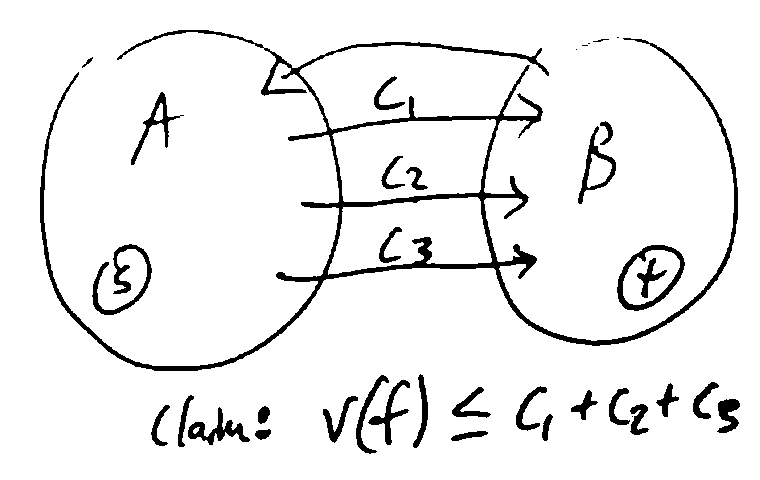 A
C1
B
C2
C3
s
t
Claim: v(f) ≤ C1 + C2 + C3